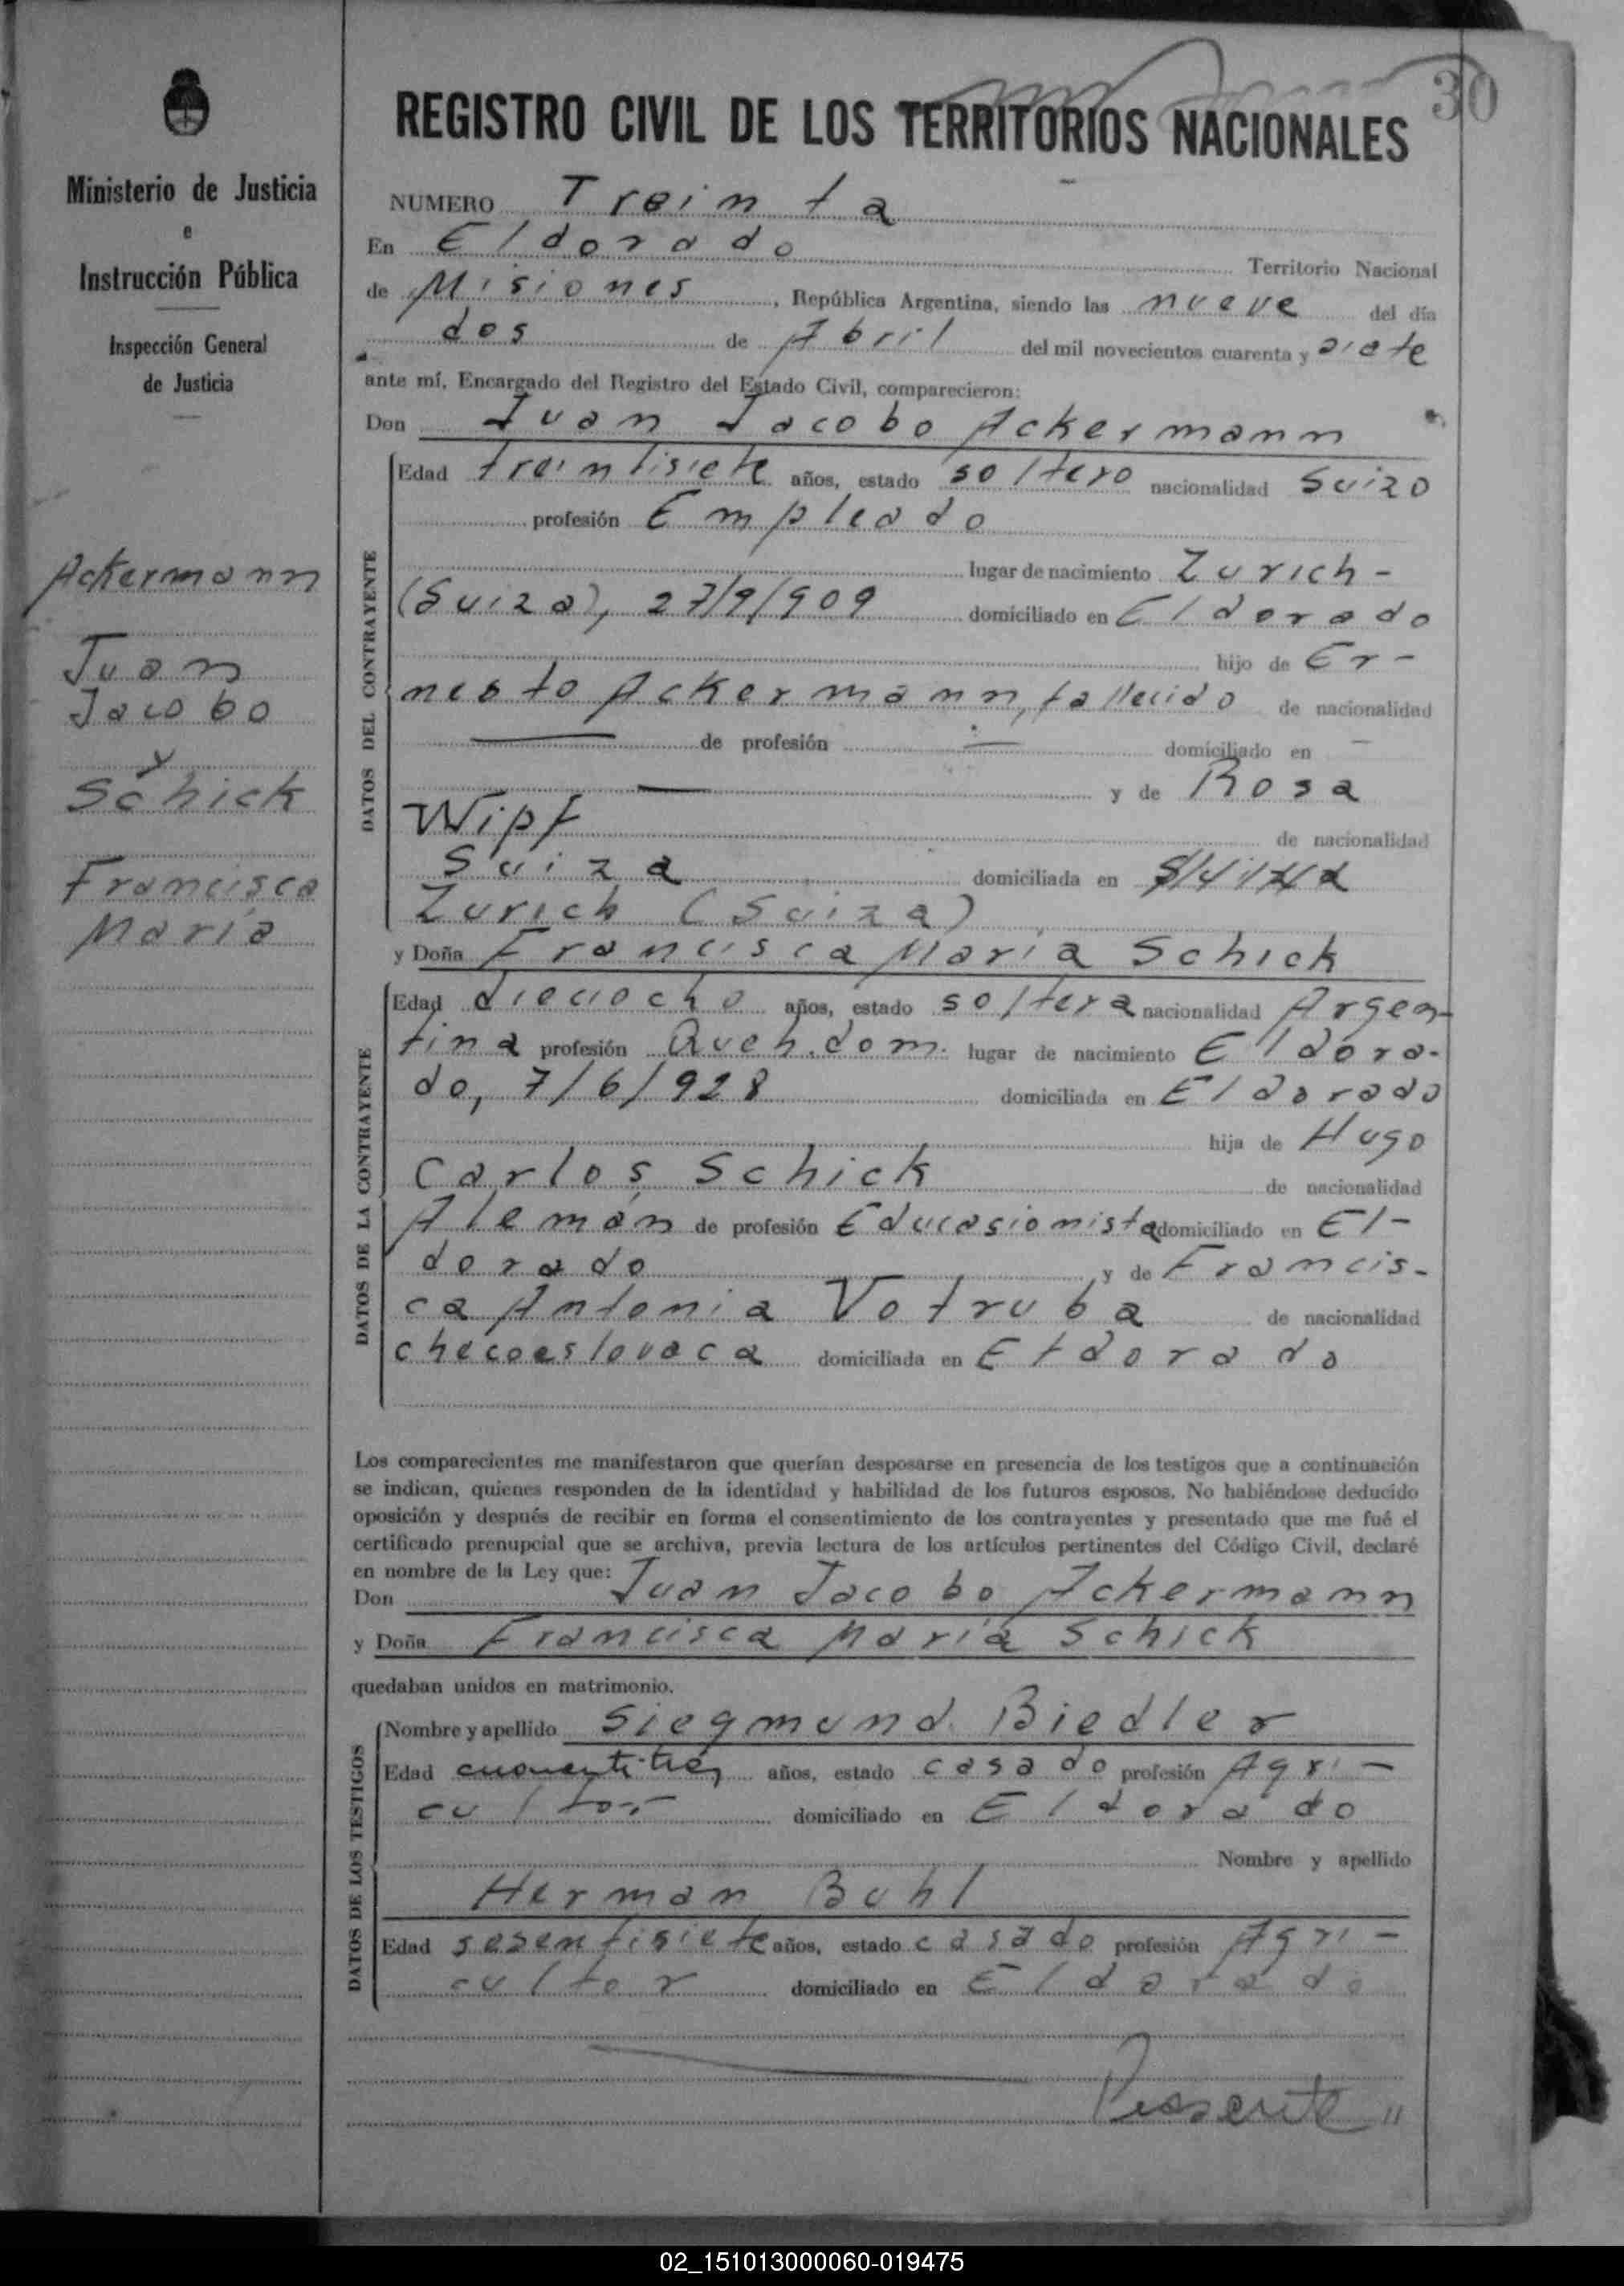 30
Ministerio de Justicia
e
Instrucción Pública
Inspección General
de Justicia
Ackermann
Juan
Jacobo
y
Schick
Francisca
María
REGISTRO CIVIL DE LOS TERRITORIOS NACIONALES
NUMERO Treinta
En Eldorado Territorio Nacional
de Misiones, República Argentina, siendo las nueve del día
dos de Abril del mil novecientos cuarenta y siete
ante mí, Encargado del Registro del Estado Civil, comparecieron:
Don Juan Jacobo Ackermann
DATOS DEL CONTRAYENTE
Edad treintisiete años, estado soltero nacionalidad Suizo
profesión Empleado
lugar de nacimiento Zurich-
(Suiza), 27/9/909 domiciliado en Eldorado
hijo de Er-
nesto Ackermann, fallecido de nacionalidad
— de profesión — domiciliado en —
— y de Rosa
Wipf de nacionalidad
Suiza domiciliada en Suiza
Zurich (Suiza)
y Doña Francisca María Schick
DATOS DE LA CONTRAYENTE
Edad dieciocho años, estado soltera nacionalidad Argen-
tina profesión Queh. dom. lugar de nacimiento Eldora-
do, 7/6/928 domiciliada en Eldorado
hija de Hugo
Carlos Schick de nacionalidad
Alemán de profesión Educasionista domiciliado en El-
dorado y de Francis-
ca Antonia Votruba de nacionalidad
checoeslovaca domiciliada en Eldorado
Los comparecientes me manifestaron que querían desposarse en presencia de los testigos que a continuación
se indican, quienes responden de la identidad y habilidad de los futuros esposos. No habiéndose deducido
oposición y después de recibir en forma el consentimiento de los contrayentes y presentado que me fué el
certificado prenupcial que se archiva, previa lectura de los artículos pertinentes del Código Civil, declaré
en nombre de la Ley que:
Don Juan Jacobo Ackermann
y Doña Francisca María Schick
quedaban unidos en matrimonio.
DATOS DE LOS TESTIGOS
Nombre y apellido Siegmund Biedler
Edad cuarentitres años, estado casado profesión Agri-
cultor domiciliado en Eldorado
Nombre y apellido
Herman Buhl
Edad sesentisiete años, estado casado profesión Agri-
cultor domiciliado en Eldorado
02_151013000060-019475